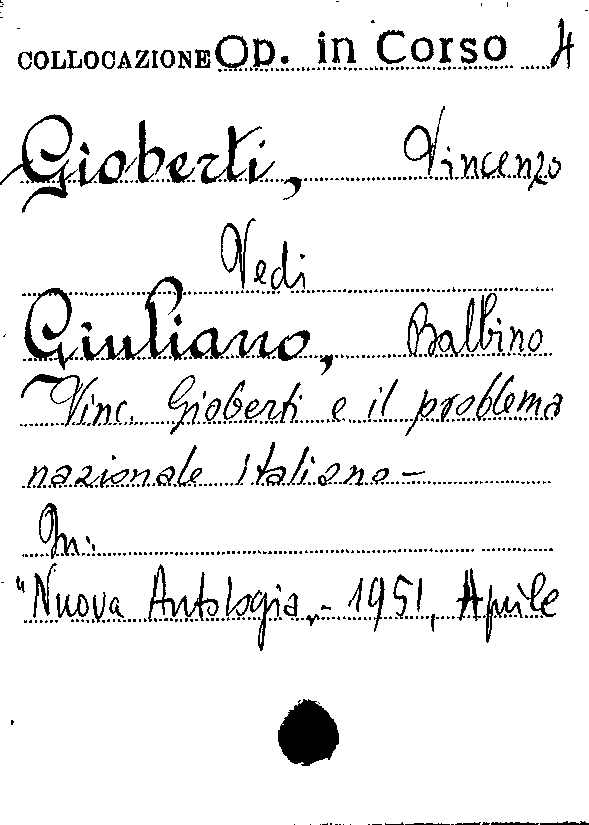 COLLOCAZIONE Op. in Corso 4
Gioberti, Vincenzo
Vedi
Giuliano, Balbino
Vinc. Gioberti e il problema
nazionale italiano-
In:
"Nuova Antologia„- 1951, Aprile